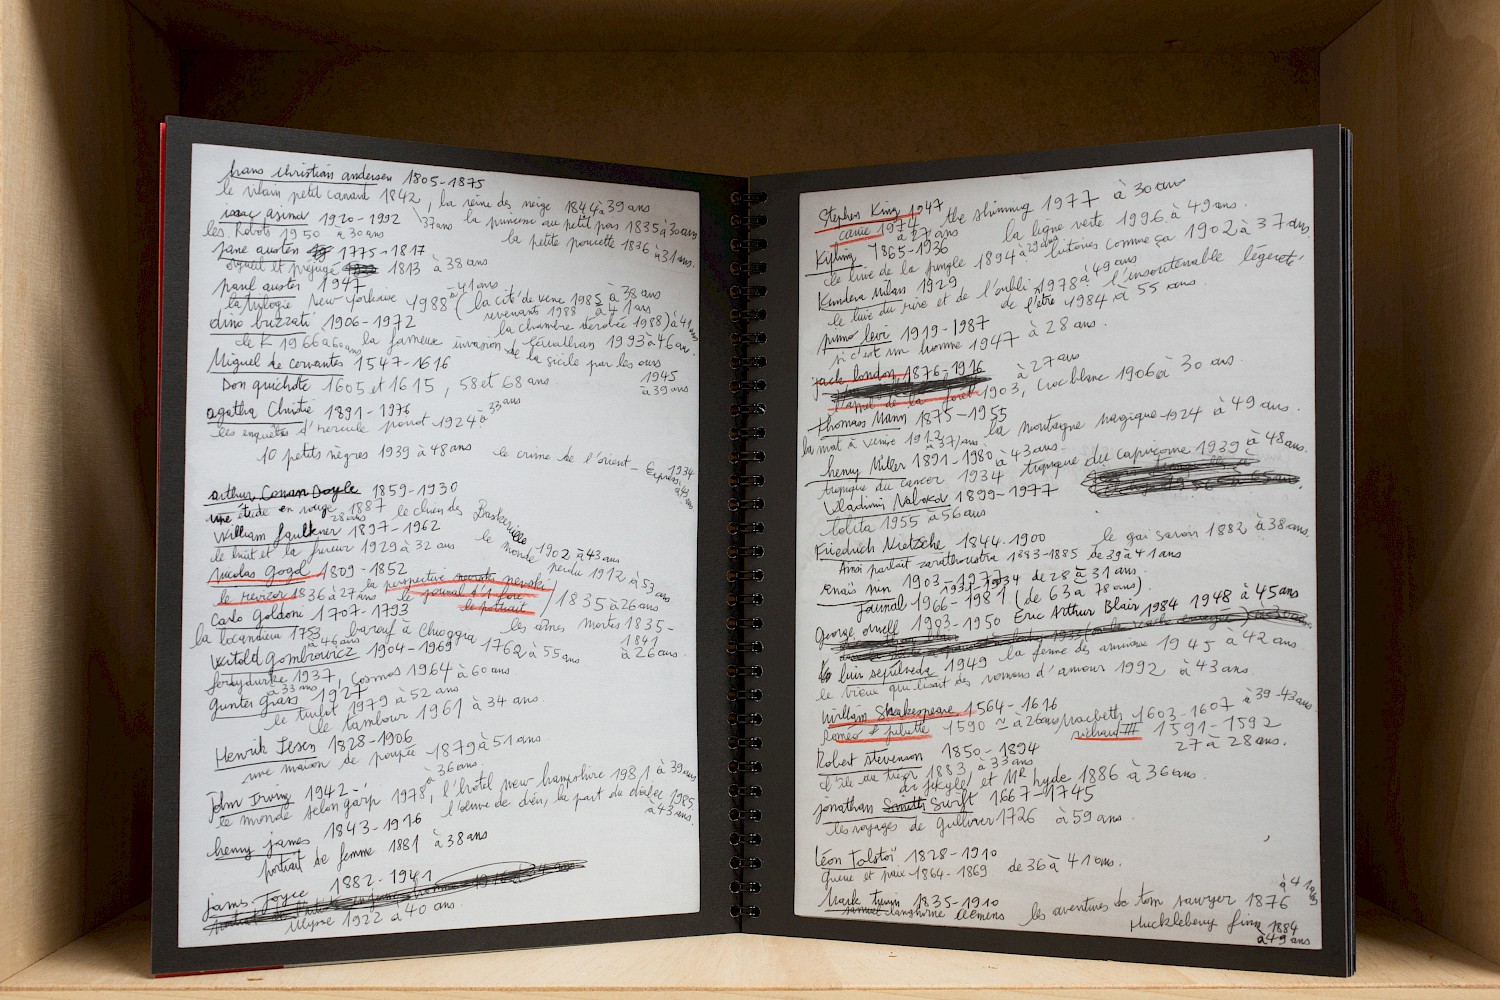 hans christian andersen 1805-1875
le vilain petit canard 1842, la reine des neige 1844 à 39 ans
à 37 ans la princesse au petit pois 1835 à 30 ans
isaac asimov 1920-1992
la petite poucette 1836 à 31 ans.
les Robots 1950 à 30 ans
jane austen 1775-1817
orgueil et préjugé 1813 à 38 ans
paul auster 1947
la trilogie new yorkaise 1988 à 41 ans ( la cité de verre 1985 à 38 ans
revenants 1988 à 41 ans
la chambre dérobée 1988) à 41 ans
dino buzzati 1906-1972
le K 1966 à 60 ans la fameuse invasion de la sicile par les ours
1945
à 39 ans
1993 à 46 an.
Miguel de cervantes 1547-1616
Don quichote 1605 et 1615, 58 et 68 ans
agatha Christie 1891-1976
les enquêtes d'hercule poirot 1924 à 33 ans
10 petits nègres 1939 à 48 ans
le crime de l'orient-Express 1934
à 43 ans
arthur Conan Doyle 1859-1930
une étude en rouge 1887
28 ans
le chien des Baskerville
1902 à 43 ans
le monde perdu 1912 à 53 ans
William faulkner 1897-1962
le bruit et la fureur 1929 à 32 ans
Nicolas Gogol 1809-1852
le revizor 1836 à 27 ans
la perspective nevski
le journal d'1 fou
le portrait
1835 à 26 ans
Carlo Goldoni 1707-1793
la locandiera 1753
à 46 ans
barouf à Chioggia 1762 à 55 ans
les âmes mortes 1835-
1841
à 26 ans.
Witold Gombrowicz 1904-1969
ferdydurke 1937, cosmos 1964 à 60 ans
à 33 ans
gunter grass 1927
le turbot 1979 à 52 ans
le tambour 1961 à 34 ans.
Henrik Ibsen 1828-1906
une maison de poupée 1879 à 51 ans
John Irving 1942-
le monde selon garp 1978, à 36 ans. l'hôtel new hampshire 1981 à 39 ans
l'œuvre de dieu, la part du diable 1985
à 43 ans.
henry james 1843-1916
portrait de femme 1881 à 38 ans
james Joyce 1882-1941
Ulysse 1922 à 40 ans.
Stephen King 1947
carrie 1974
à 27 ans
the shinning 1977 à 30 ans
la ligne verte 1996 à 49 ans.
Kipling 1865-1936
le livre de la jungle 1894 à 29 ans histoires comme ça 1902 à 37 ans.
Kundera Milan 1929
le livre du rire et de l'oubli 1978 à 49 ans l'insoutenable légèreté
de l'être 1984 à 55 ans.
primo levi 1919-1987
si c'est un homme 1947 à 28 ans.
jack london 1876-1916
à 27 ans
l'appel de la forêt 1903, Croc blanc 1906 à 30 ans.
thomas Mann 1875-1955
la mort à venise 1912
à 37 ans
la montagne magique 1924 à 49 ans.
henry Miller 1891-1980
tropique du cancer 1934 à 43 ans. tropique du capricorne 1939 à 48 ans.
Vladimir Nabokov 1899-1977
lolita 1955 à 56 ans
Friedrich Nietzsche 1844.1900
le gai savoir 1882 à 38 ans.
Ainsi parlait zarathoustra 1883-1885 de 39 à 41 ans
anaïs nin 1903-1977
1931-1934 de 28 à 31 ans.
journal 1966-1981 (de 63 à 78 ans)
George orwell 1903-1950 Eric Arthur Blair 1984 1948 à 45 ans
la ferme des animaux 1945 à 42 ans.
luis sepúlveda 1949
le vieux qui lisait des romans d'amour 1992 à 43 ans.
William Shakespeare 1564-1616
Roméo & juliette 1590 ~ à 26 ans / Macbeth 1603-1607 à 39-43 ans
richard III 1591-1592
27 à 28 ans.
Robert stevenson 1850-1894
l'île au trésor 1883 à 33 ans
dr jekyll et Mr hyde 1886 à 36 ans.
jonathan Smith Swift 1667-1745
les voyages de gulliver 1726 à 59 ans.
Léon Tolstoï 1828-1910
guerre et paix 1864-1869 de 36 à 41 ans.
Mark twain 1835-1910
samuel langhorne clemens
les aventures de tom sawyer 1876
à 41 ans
Huckleberry finn 1884
à 49 ans